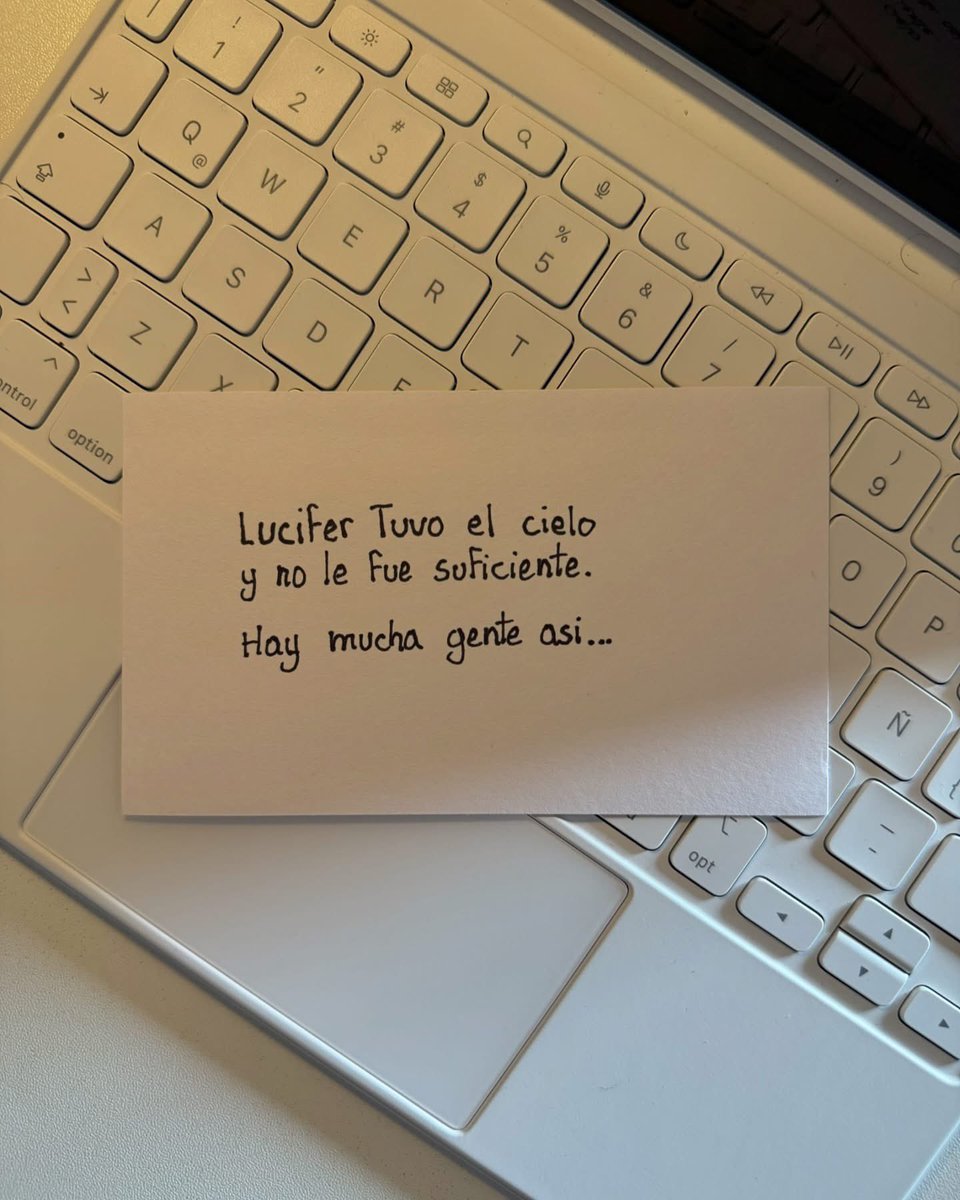 !
1
"
2
#
3
$
4
%
5
&
6
/
7
)
9
Q
@
W
E
R
T
O
P
A
S
D
F
Ñ
>
<
Z
X
^
ontrol
option
Lucifer Tuvo el cielo
y no le fue suficiente.
Hay mucha gente asi...
_
-
opt